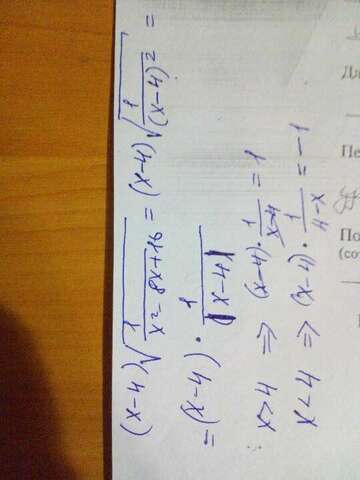 (x-4)√(1/(x²-8x+16)) = (x-4)√(1/(x-4)²) =
= (x-4) · 1/|x-4|
x>4 ⇒ (x-4)·1/(x-4) = 1
x<4 ⇒ (x-4)·1/(4-x) = -1
Пе
По
(со